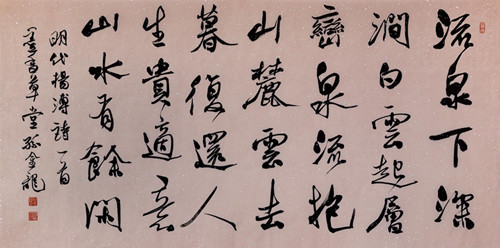 流泉下深
澗白雲起層
巒泉流抱
山麓雲去
暮復還人
生貴適意
山水有餘閑
明代楊溥詩一首
草堂孫金龍